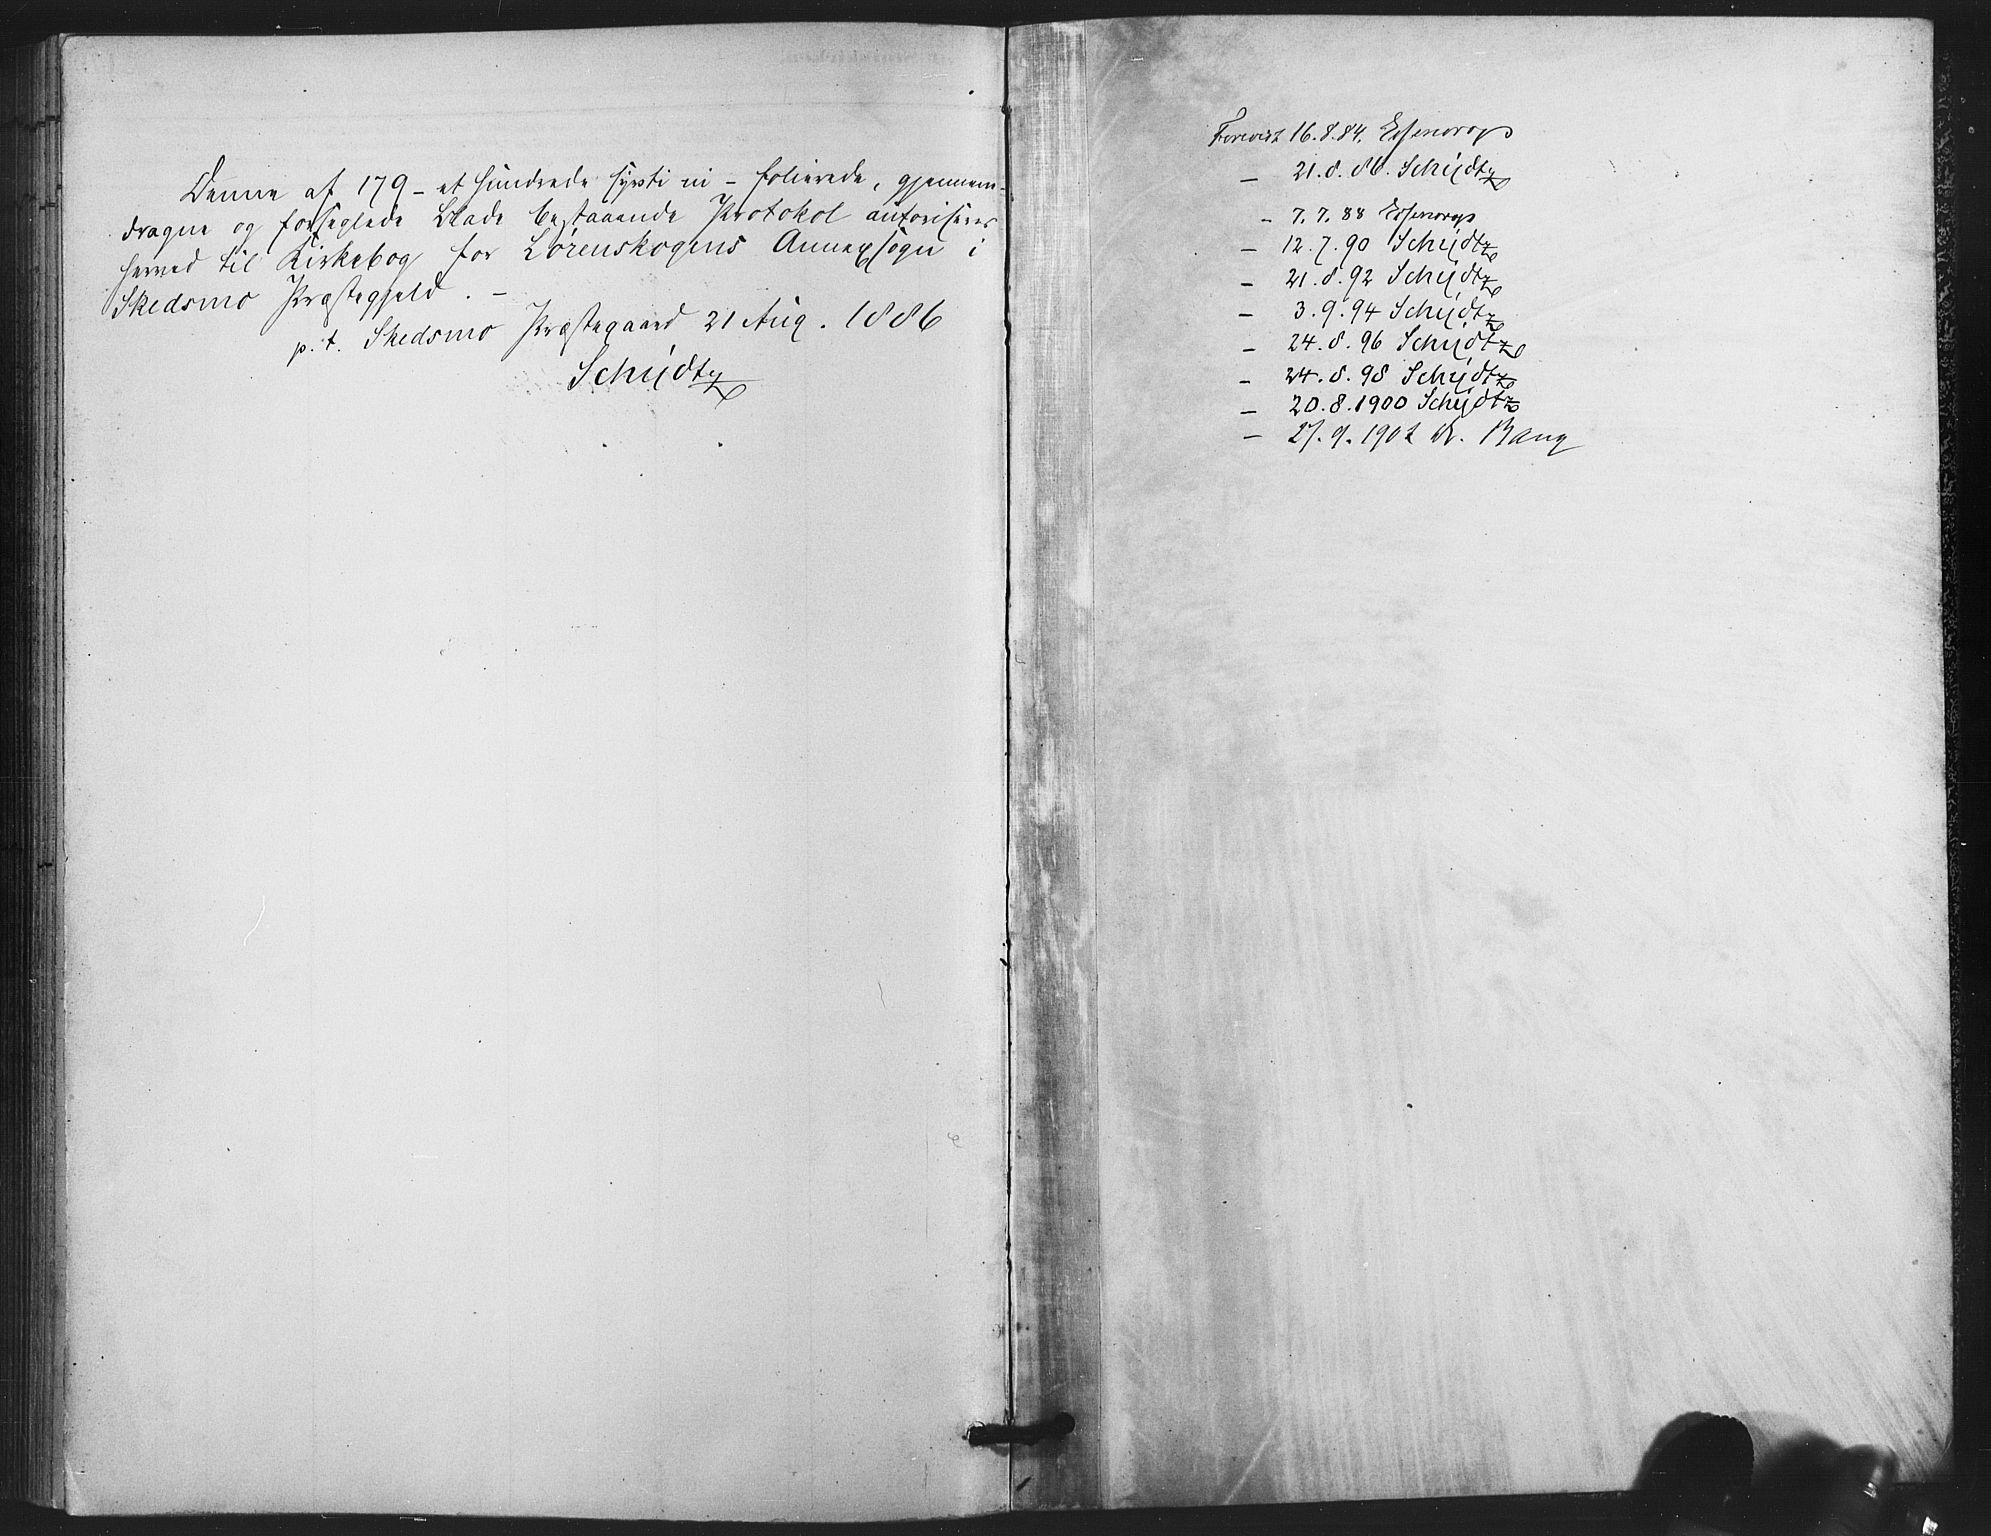 Denne af 179 - et hundrede sytti ni - folierede, gjennem-
dragne og forseglede Blade bestaaende Protokol autoriseres
herved til Kirkebog for Lørenskogens Annexsogn i
Skedsmo Præstegjeld. -
p. t. Skedsmo Præstegaard 21 Aug. 1886
Schijdtz
Forevist 16.8.84. Essendrop
- 21.8.86. Schijdtz
- 7.7.88 Essendrop
- 12.7.90 Schijdtz
- 21.8.92 Schijdtz
- 3.9.94 Schijdtz
- 24.8.96 Schijdtz
- 24.8.98 Schijdtz
- 20.8.1900 Schijdtz
- 27.9.1902 Bang